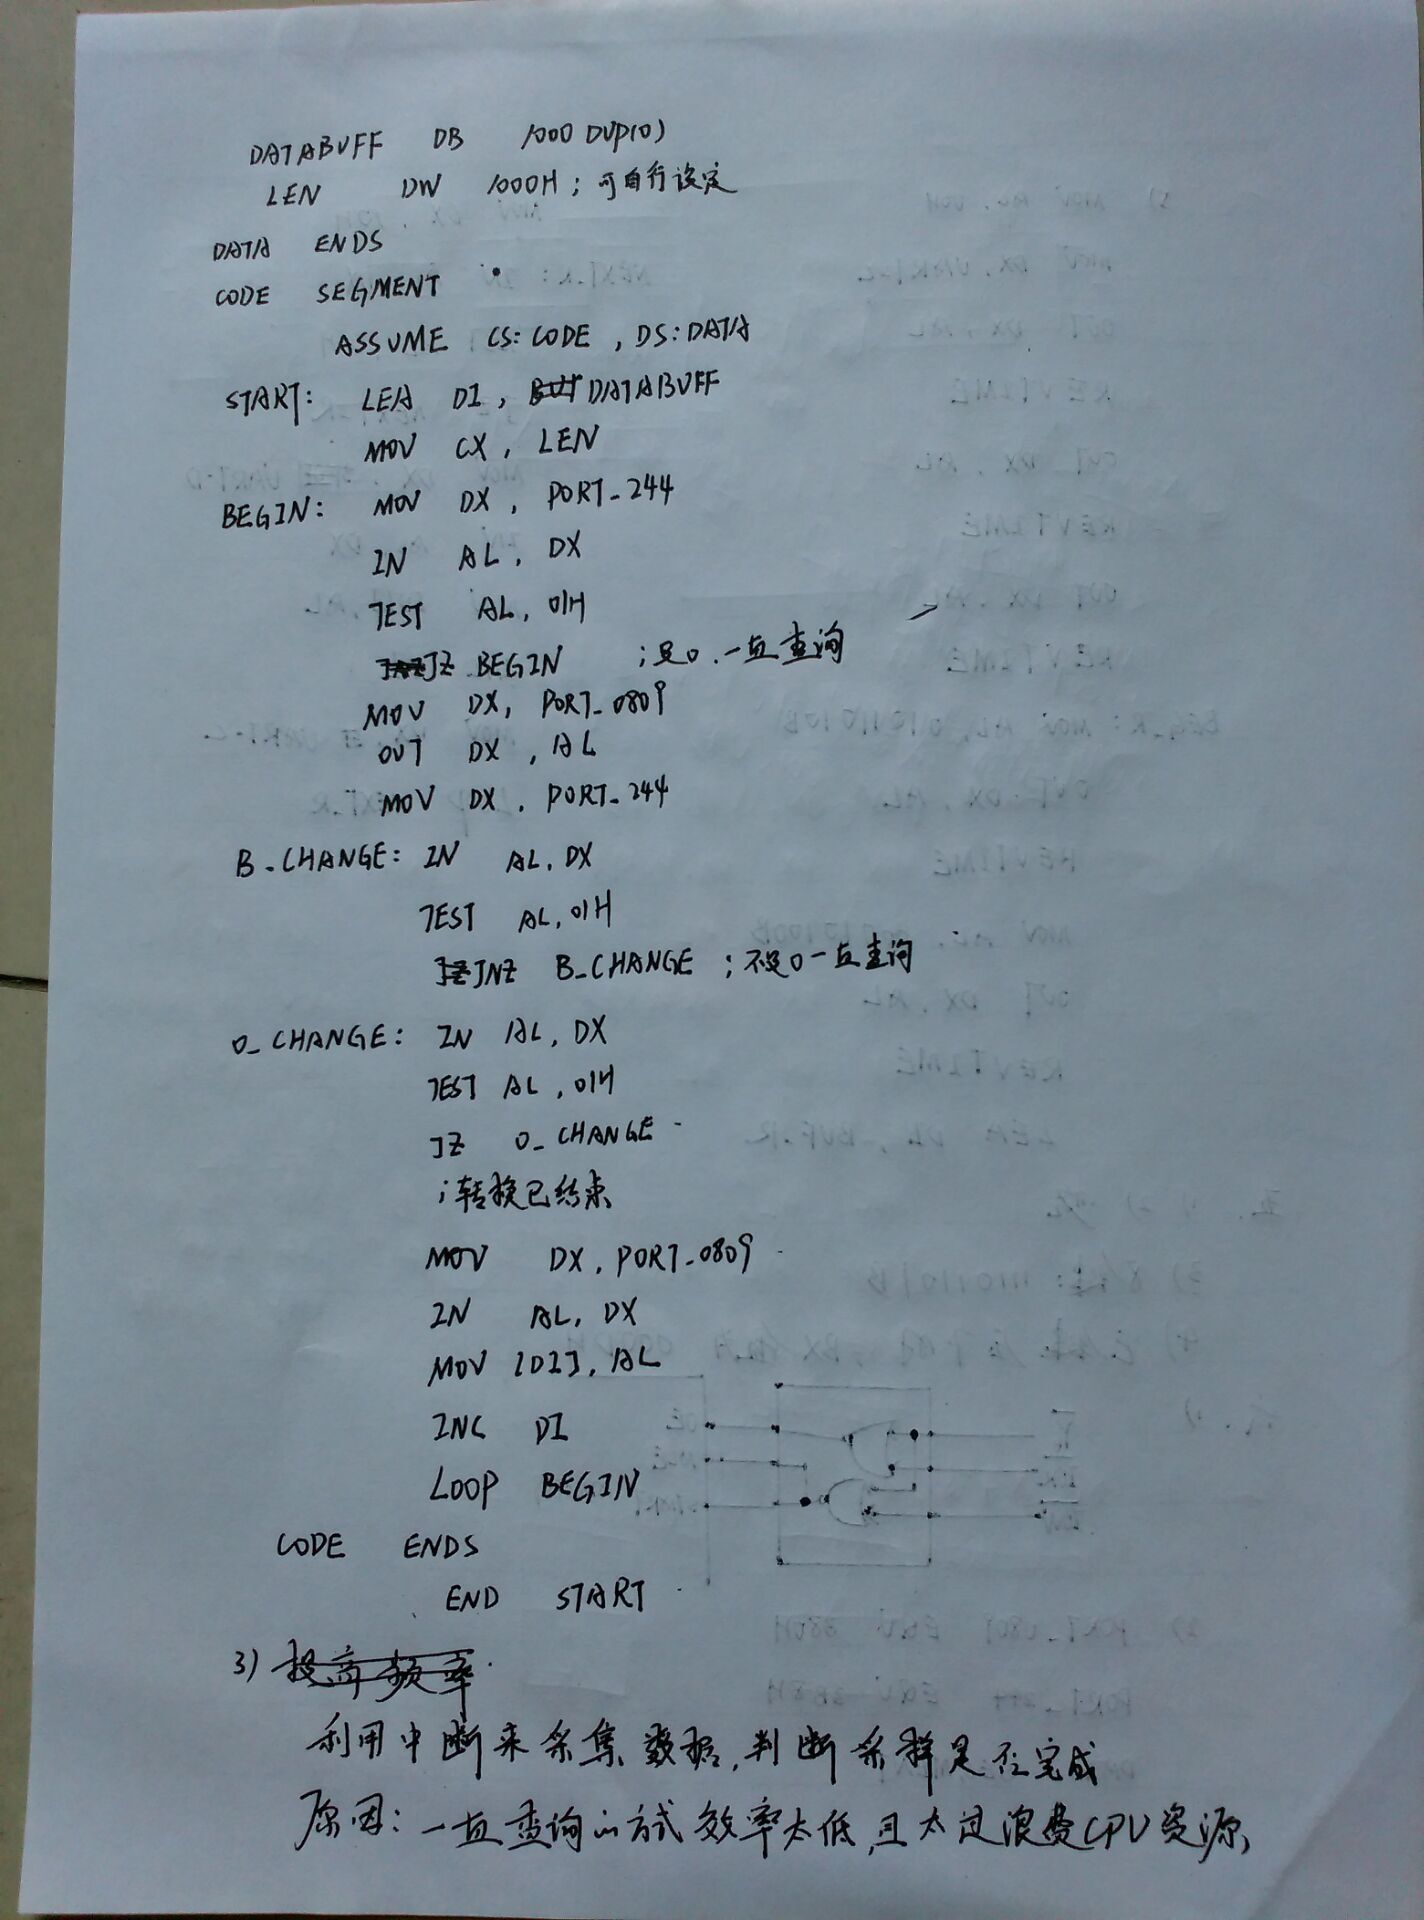 DATABUFF DB 1000 DUP(0)
LEN DW 1000H ; 可自行设定
DATA ENDS
CODE SEGMENT
ASSUME CS: CODE , DS: DATA
START: LEA DI , DATABUFF
MOV CX , LEN
BEGIN: MOV DX , PORT_244
IN AL , DX
TEST AL , 01H
JZ BEGIN ;是0.一直查询
MOV DX, PORT_0809
OUT DX , AL
MOV DX , PORT_244
B_CHANGE: IN AL, DX
TEST AL, 01H
JNZ B_CHANGE ; 不是0一直查询
O_CHANGE: IN AL, DX
TEST AL , 01H
JZ O_CHANGE
; 转换已结束
MOV DX , PORT_0809
IN AL, DX
MOV [DI], AL
INC DI
LOOP BEGIN
CODE ENDS
END START
3) 提高频率
利用中断来采集数据,判断采样是否完成
原因: 一直查询的方式效率太低,且太过浪费CPU资源,